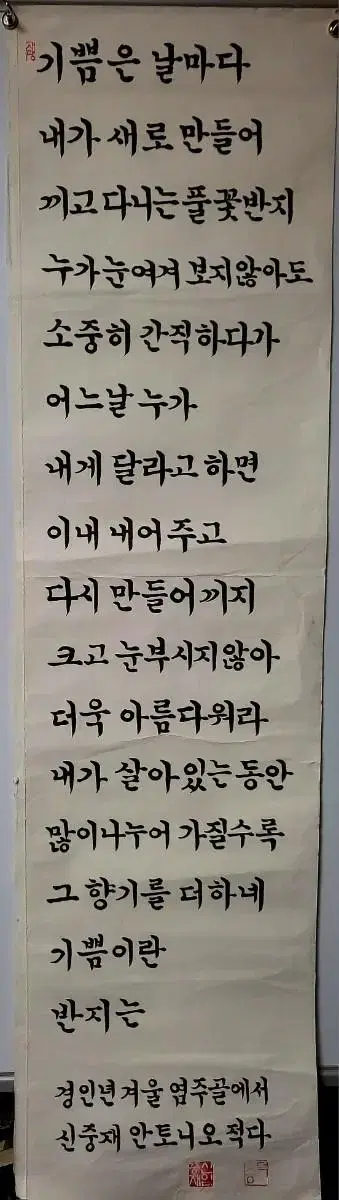 기쁨은 날마다
내가 새로 만들어
끼고 다니는 풀꽃반지
누가 눈여겨 보지않아도
소중히 간직하다가
어느날 누가
내게 달라고 하면
이내 내어주고
다시 만들어끼지
크고 눈부시지않아
더욱 아름다워라
내가 살아있는동안
많이나누어 가질수록
그 향기를 더하네
기쁨이란
반지는
경인년겨울 염주골에서
신중재 안토니오적다